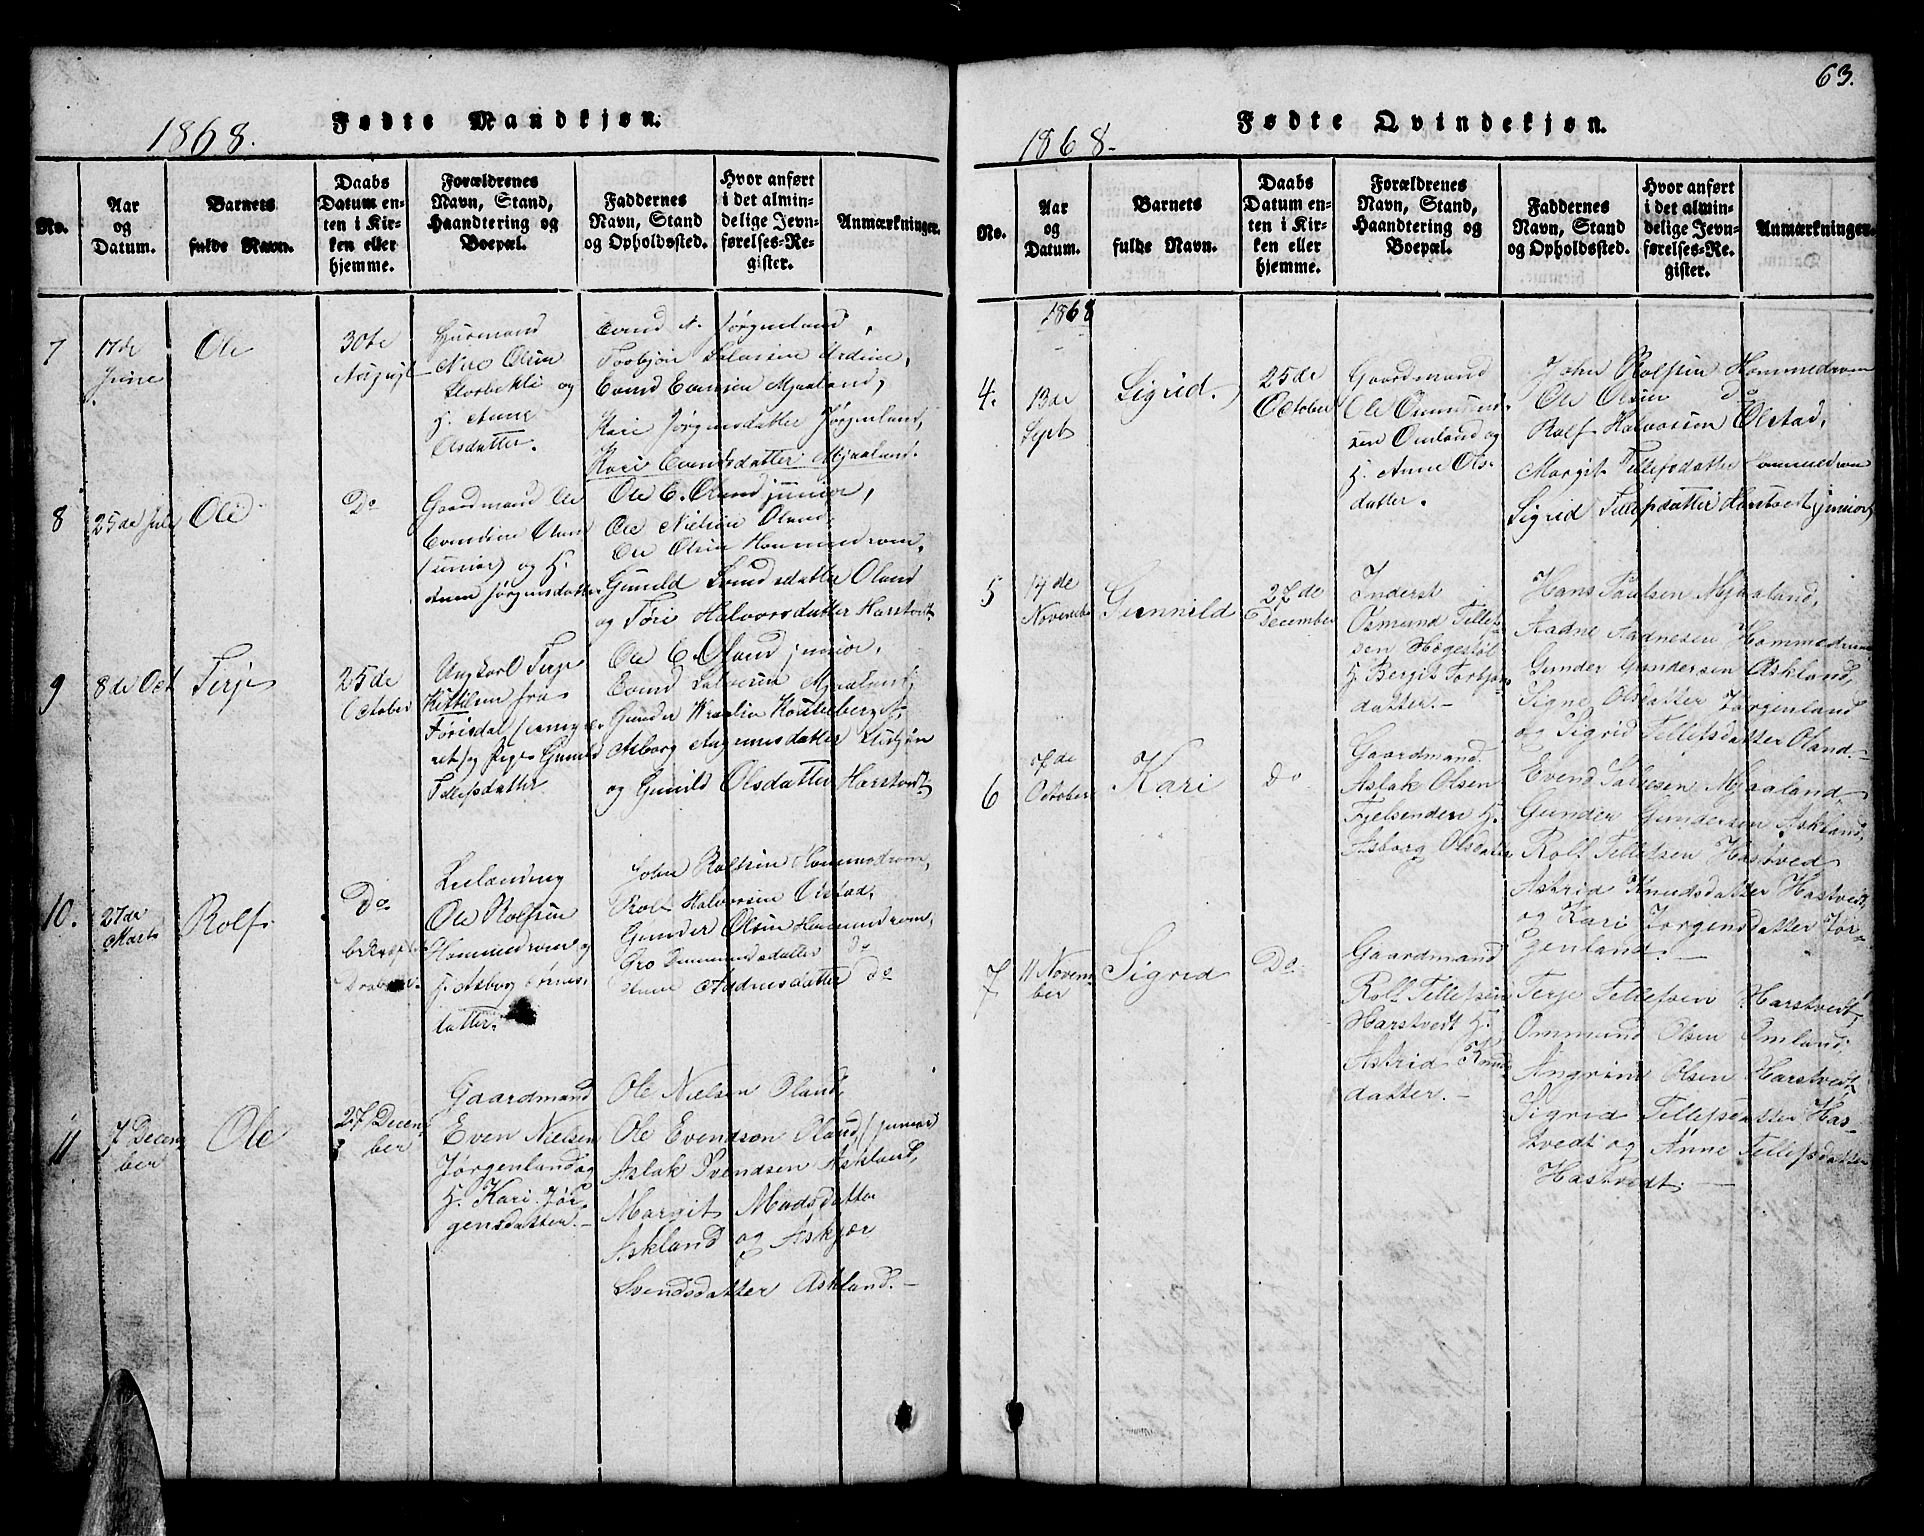 63.
1868.
Fødte Mandkjøn.
No.
Aar
og
Datum.
Barnets
fulde Navn.
Daabs
Datum en-
ten i Kir-
ken eller
hjemme.
Forældrenes
Navn, Stand,
Haandtering og
Boepæl.
Faddernes
Navn, Stand
og Opholdssted.
Hvor anført
i det almin-
delige Jevn-
førelses-Re-
gister.
Anmærkninger.
7
17de
June
Ole
30te
August
Huusmand
Olsen
og
H. Anne
Olsdatter.
Evend N. Jørgenland,
Torbjør Salvesen
Evend Evensen Mjaaland,
Kari Jørgensdatter Jørgenland,
Kari Evensdatter Mjaaland.
8
25de Juli
Ole
Do
Gaardmand Ole
Evendsen Oland
(junior) og H.
Jørgensdatter
Ole E. Oland junior,
Ole Nielsen Oland,
Ole Olsen Hommedrom,
Gunild Svendsdatter Oland
og Tøri Halvorsdatter Harstvedt.
9
8de Oct
Terje
25de
October
Ungkarl Terje
Kittilsen fra
Førisdal
og Pige Gunild
Tellefsdatter
Ole E. Oland junior,
Evend Salvesen Mjaaland,
Gunder
Asborg Aagensdatter
og Gunild Olsdatter Harstvedt
10.
27de
Marts
Rolf
Do
Leilænding
Ole Rolfsen
Hommedrom og
H. Asborg
datter.
John Rolfsen Hommedrom,
Rolf Halvorsen Ølstad,
Gunder Olsen Hommedrom,
Gro datter do
Anne Aadnesdatter do
11
7 Decem
ber
Ole
27 Decem
ber
Gaardmand
Even Nielsen
Jørgenland og
H. Kari Jør
gensdatter.-
Ole Nielsen Oland,
Ole Evendsøn Oland, (junior
Aslak Svendsen Askland,
Margit Madsdatter
Askland og Askjær
Svendsdatter Askland.-
1868.
Fødte Qvindekjøn.
No.
Aar
og
Datum.
Barnets
fulde Navn.
Daabs
Datum en-
ten i Kir-
ken eller
hjemme.
Forældrenes
Navn, Stand,
Haandtering og
Boepæl.
Faddernes
Navn, Stand
og Opholdssted.
Hvor anført
i det almin-
delige Jevn-
førelses-Re-
gister.
Anmærkninger.
1868
4.
13de
Sept
Sigrid.
25de
October
Gaardmand
Ole Omunds
sen Omland og
H. Anne Ols-
datter.
John Rolfsen Hommedrom
Ole Olsen do
Rolf Halvorsen Ølstad,
Margit Tellefsdatter Hommedrom
Sigrid Tellefsdatter Harstvedt (junior)
5
14de
Novembr
Gunnild
27de
December
Inderst
Osmund Tellef-
sen Høgestøl
H. Bergit Torbjørns
datter.-
Hans Paulsen Mjaaland,
Aadne Aadnesen Hommedrom
Gunder Gundersen Askland,
Signe Olsdatter Jørgenland
og Sigrid Tellefsdatter Oland.-
6
17de
October
Kari
do
Gaardmand
Aslak Olsen
Fjelsenden H.
Asborg Olsdatter
Evend Salvesen Mjaaland,
Gunder Gundersen Askland,
Rolf Tellefsen Hastved
Astrid Knudsdatter Hastvedt,
og Kari Jørgensdatter Jør-
genland.-
7
11 Novem
ber
Sigrid
Do
Gaardmand
Rolf Tellefsen
Harstvedt H.
Astrid Knuds
datter.-
Terje Tellefsen Harstvedt,
Ommund Olsen Omland,
Angrim Olsen Harstvedt,
Sigrid Tellefsdatter Has-
tvedt og Anne Tellefsdatter
Hastvedt.-